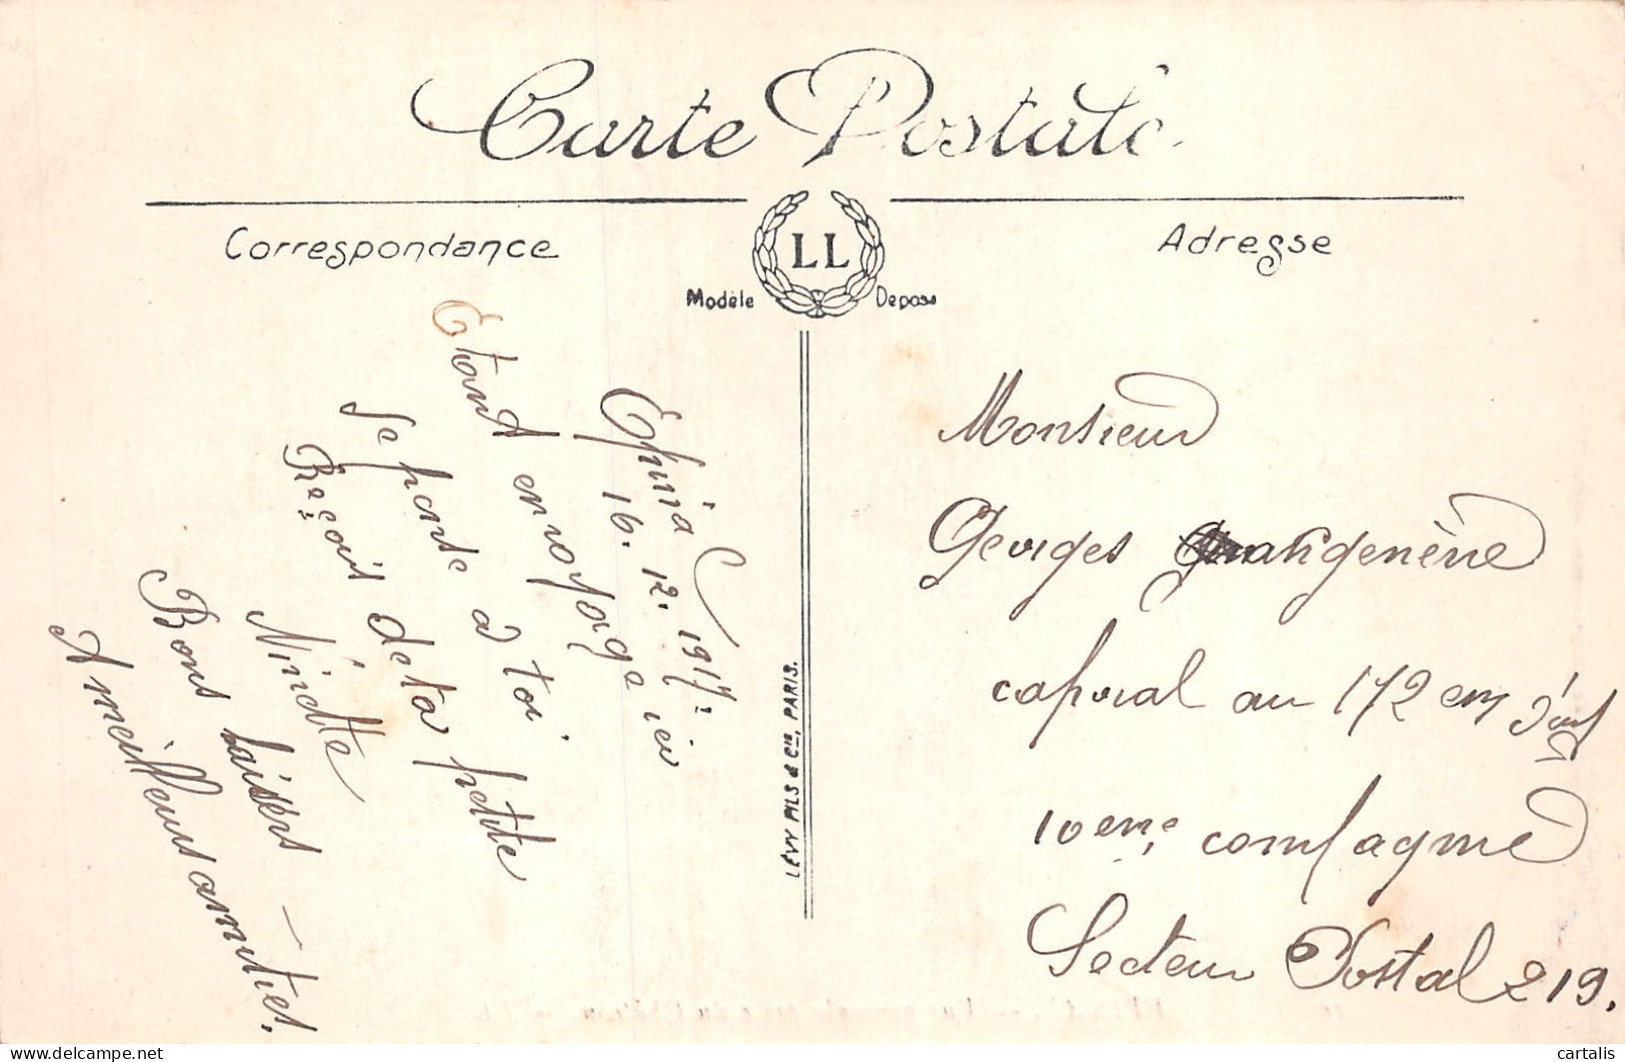 Carte Postale
Correspondance
LL
Modèle Déposé
Adresse
Epinal
16. 12. 1917
Etant en voyage ici
Je pense à toi
Reçoit de ta petite
Ninette
Bons baisers
A meilleurs amitiés.
LÉVY FILS & Cie, PARIS.
Monsieur
Georges
caporal au 172 em d'inf
10eme compagnie
Secteur Postal 219.
cartalis